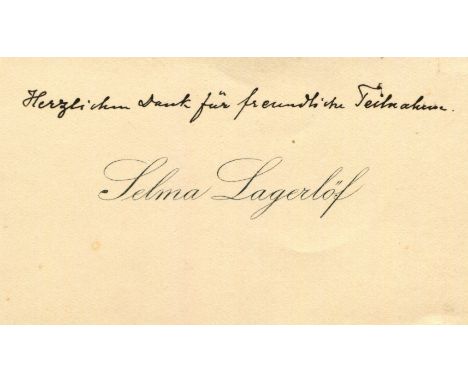 Herzlichen Dank für freundliche Teilnahme.
Selma Lagerlöf